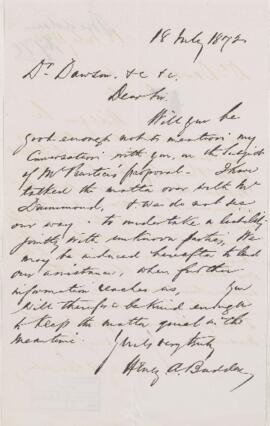 18 July 1892
Dr Dawson. &c &c.
Dear Sir
Will you be
good enough not to mention my
Conversation with you, on the Subject
of Mr proposal. I have
talked the matter over with Mr
Drummond, & we do not see
our way to undertake a liability
jointly with unknown parties. We
may be induced hereafter to lend
our assistance, when further
information reaches us. You
will therefore be kind enough
to keep the matter quiet in the
meantime.
Yours very truly
Henry A. Budden